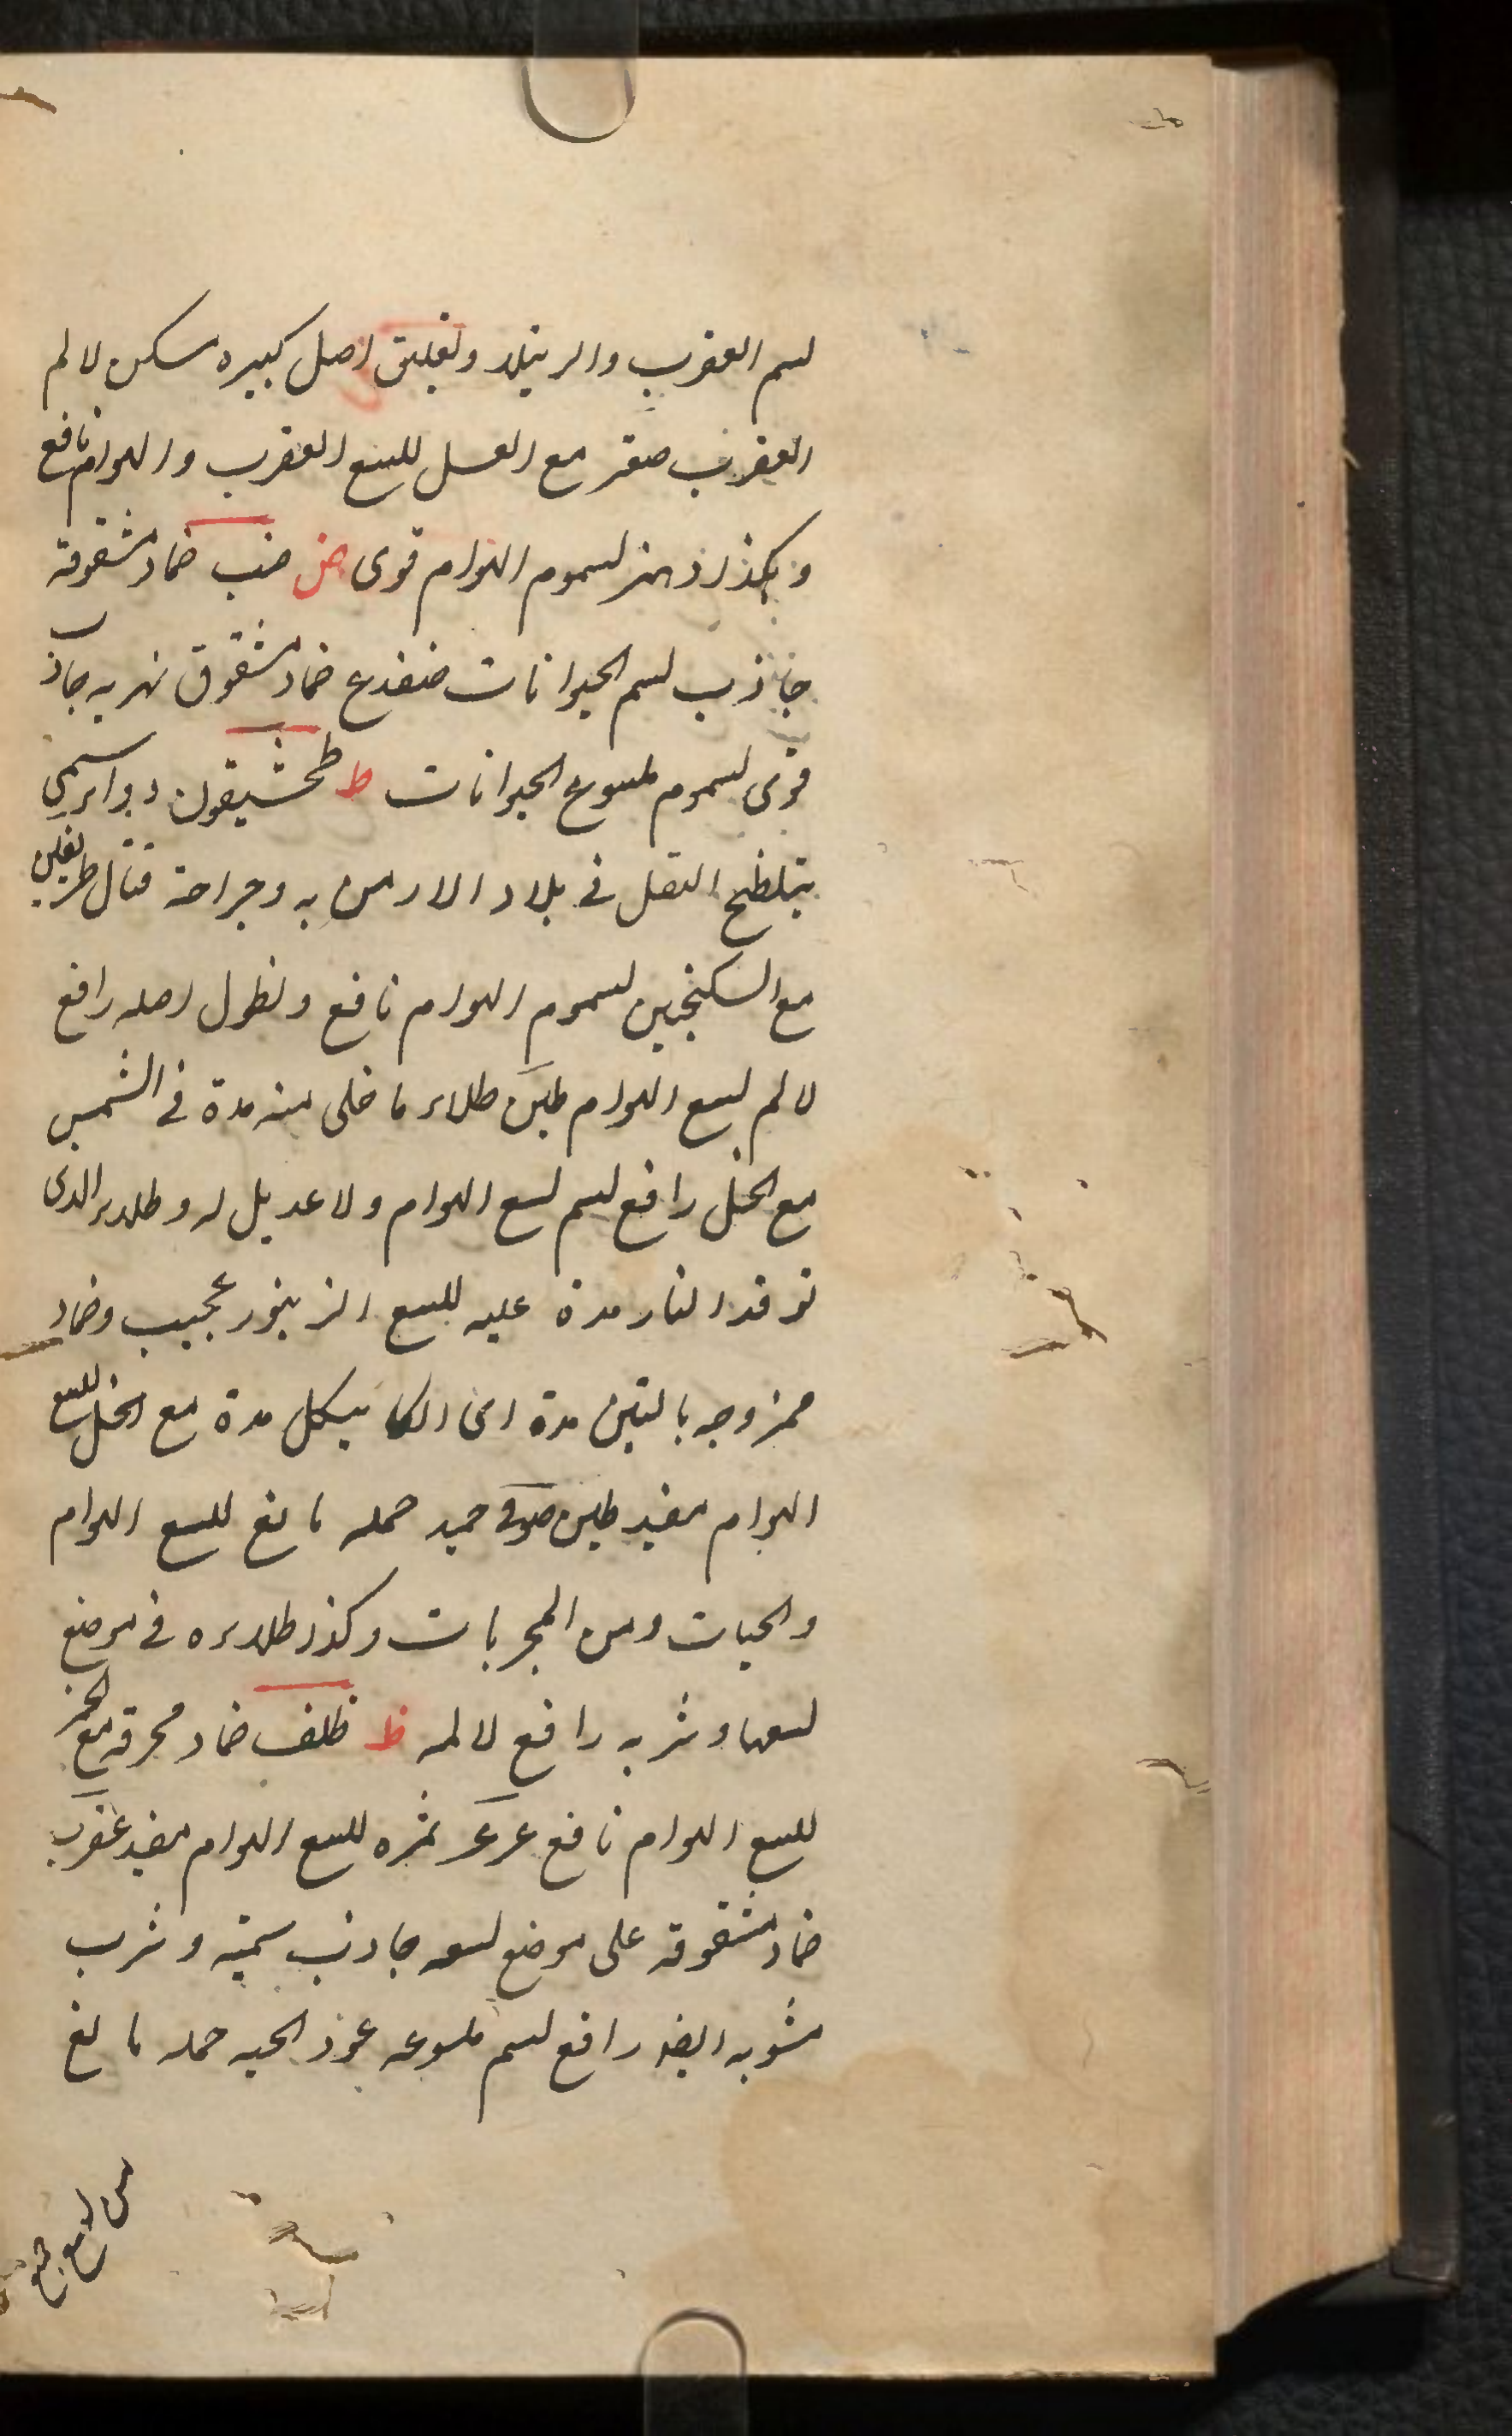 لسم العقرب والرتيلا وتعليق اصل كبيره مسكن لالم
العقرب صعتر مع العسل للسع العقرب والهوام نافع
وبكذا دهنه لسموم الهوام قوى ض ضب ضماد مشقوقة
جاذب لسم الحيوانات ضفدع ضماد مشقوق نهريه جاذب
قوى لسموم ملسوع الحيوانات ط طخشيقون دواء سمي
يتلطخ النصل فى بلاد الارمن به وجراحة قتال طريفلن
مع السكنجبين لسموم الهوام نافع ونطول اصله رافع
لالم لسع الهوام طين طلاء ما خلى منه مدة فى الشمس
مع الخل رافع لسم لسع الهوام ولا عديل له وطلاء الذى
توقد النار مدة عليه للسع الزنبور عجيب وضماد
ممزوجه بالتبن مدة اى الكاهيكل مدة مع الخل للسع
الهوام مفيد طين حمله مانع للسع الهوام
والحيات ومن المجربات وكذا طلاءه فى موضع
لسعها وشربه رافع لالمه ظ ظلف ضماد محرقه مع الخمر
للسع الهوام نافع عرعر ثمره للسع الهوام مفيد عقرب
ضماد مشقوقة على موضع لسعه جاذب سميته وشرب
مشويه ايضا رافع لسم ملسوعه عود الحيه حمله مانع
من لسع